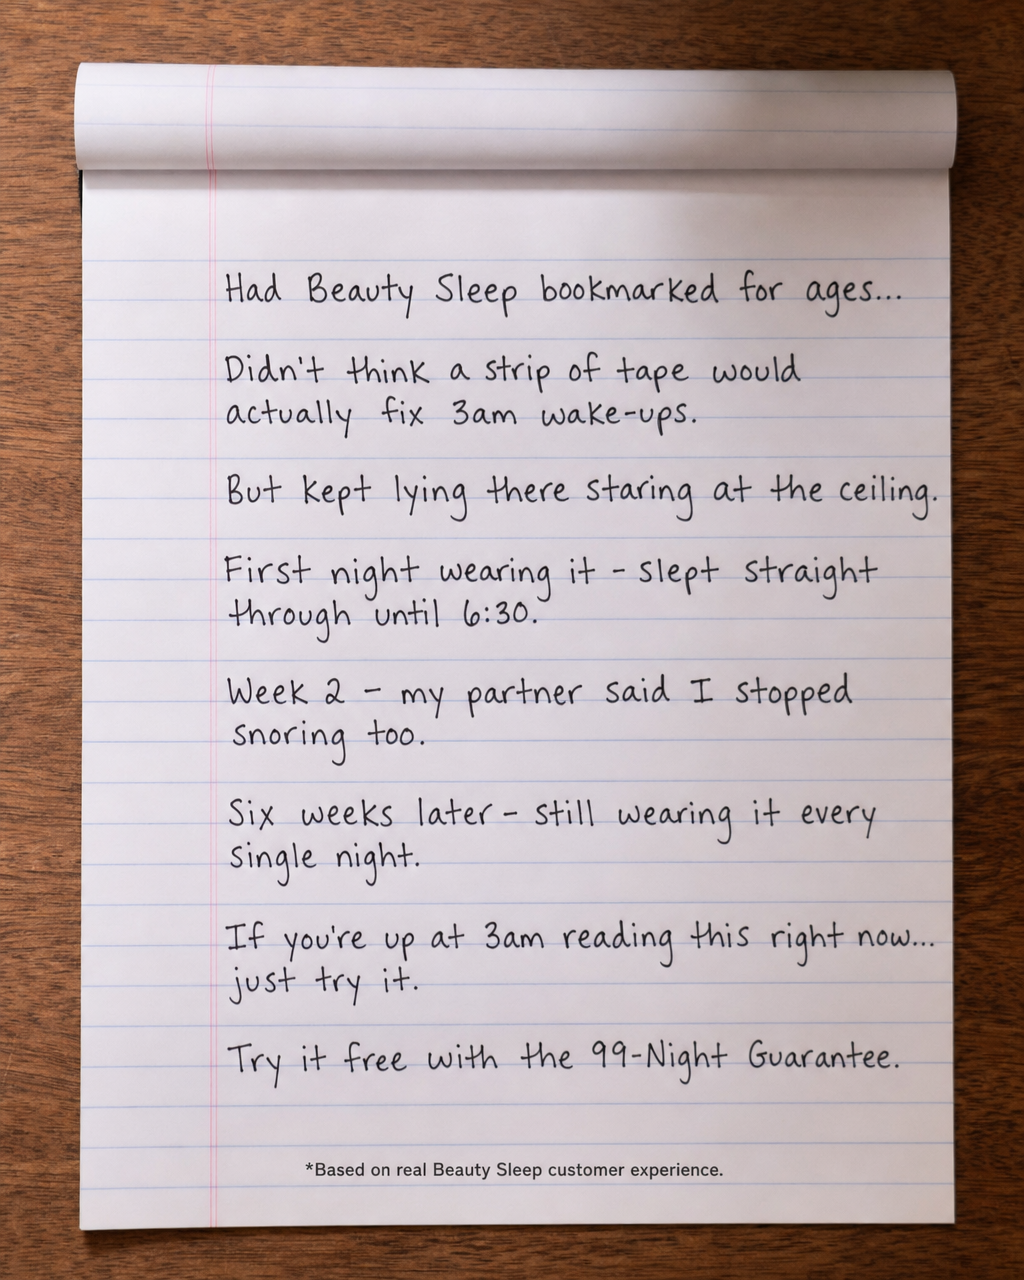 Had Beauty Sleep bookmarked for ages...
Didn't think a strip of tape would
actually fix 3am wake-ups.
But kept lying there staring at the ceiling.
First night wearing it - slept straight
through until 6:30.
Week 2 - my partner said I stopped
snoring too.
Six weeks later - still wearing it every
single night.
If you're up at 3am reading this right now...
just try it.
Try it free with the 99-Night Guarantee.
*Based on real Beauty Sleep customer experience.